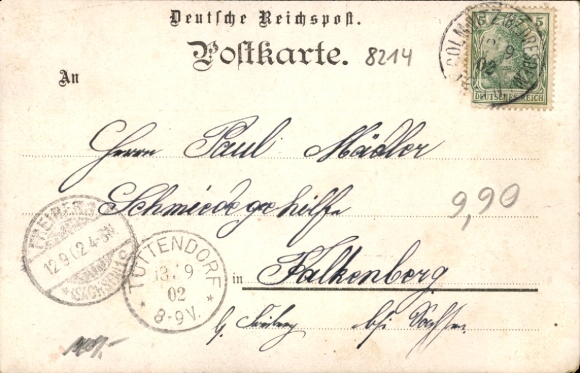 Deutsche Reichspost.
Postkarte.
8214
An
5
DEUTSCHES REICH
Herrn Paul Mädler
Schmiedegehilfe
9,90
in Falkenberg
b/ Freiberg bei Sachsen
FREIBERG
12.9.02.4-5N.
(SACHSEN)
TUTTENDORF
13.9
02
8-9V.